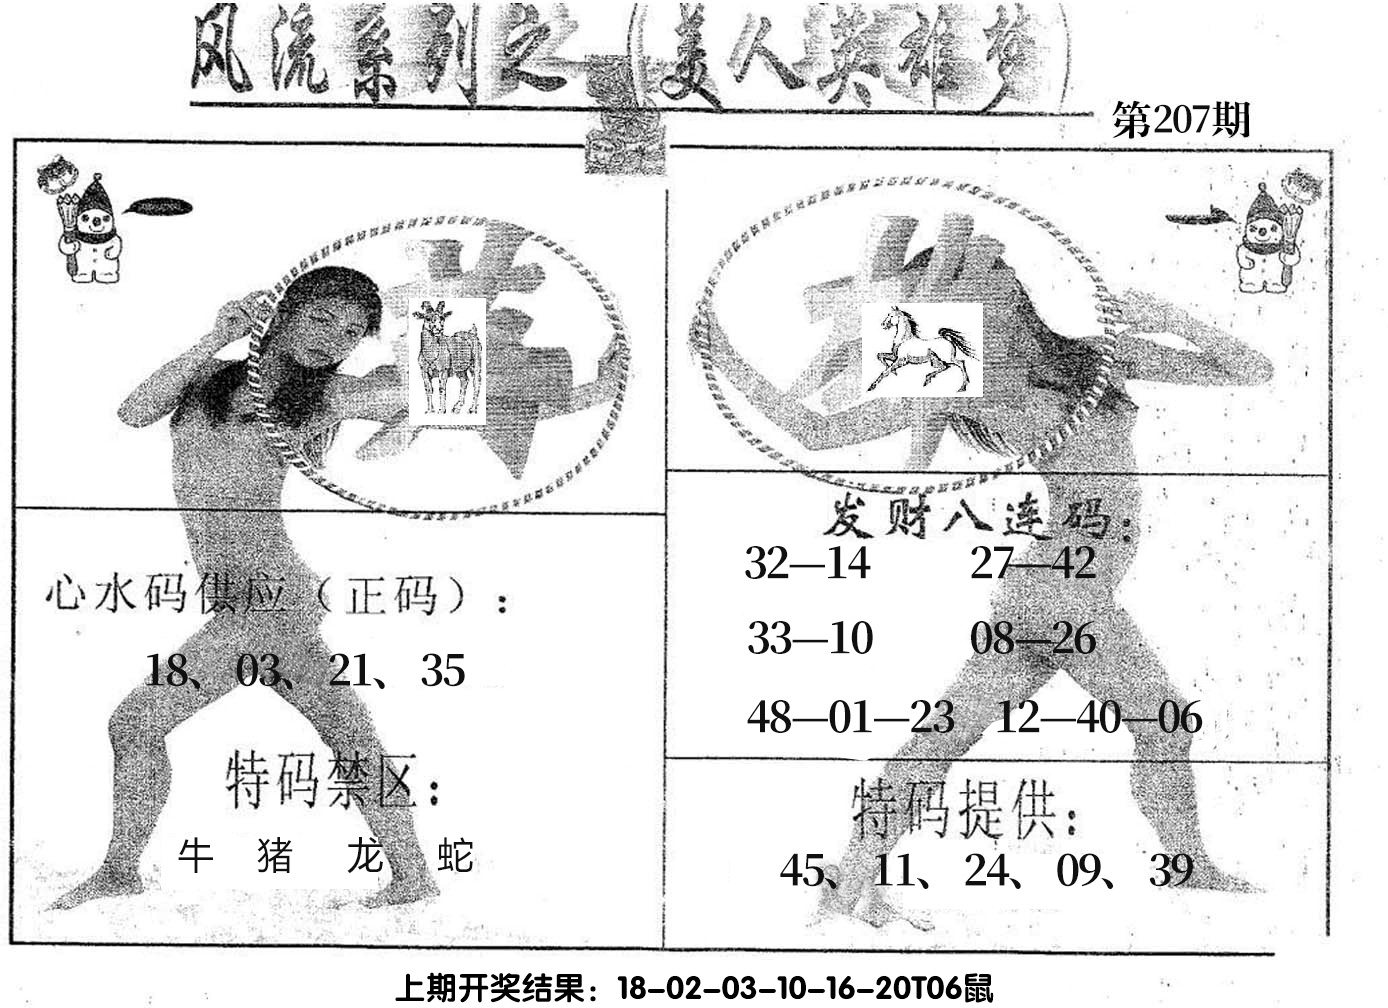 风流系列之（美人英雄梦
第207期
心水码供应（正码）：
18、03、21、35
特码禁区：
牛 猪 龙 蛇
发财八连码：
32—14 27—42
33—10 08—26
48—01—23 12—40—06
特码提供：
45、11、24、09、39
上期开奖结果：18-02-03-10-16-20T06鼠